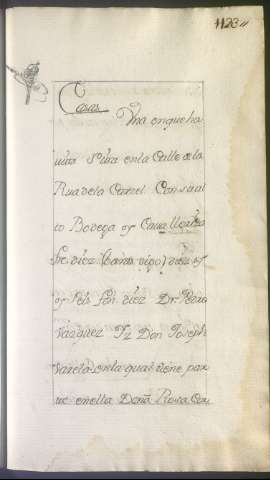 1123
Casas
Una en que ha
vita Sria en la Calle de la
Rua de la Carzel Con su al
to Bodega y Cavalleriza
fre diez varas digo) diez y
y seis fon diez Dr Pedro
Vazquez Yz Don Joseph
Varela en la qual tiene par
te en ella Doña Rosa